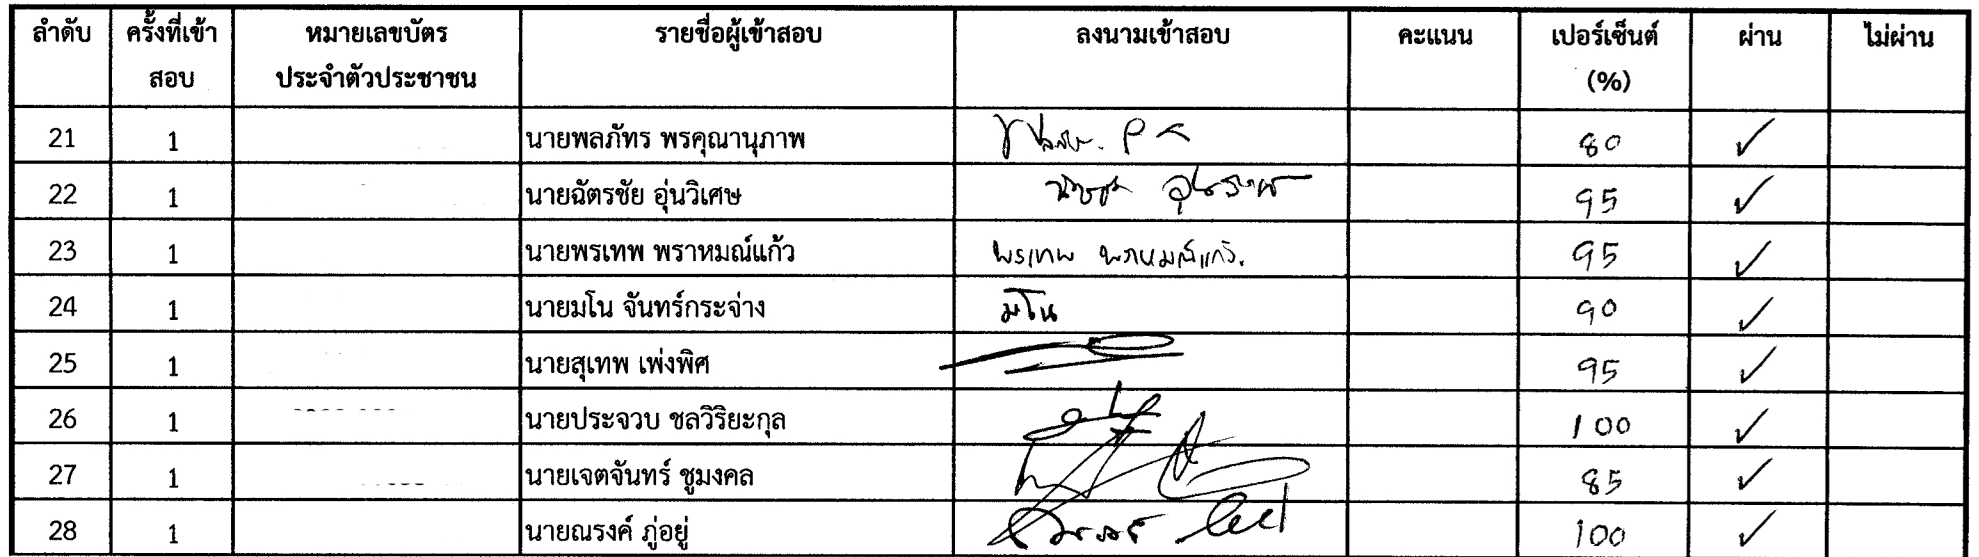 ลำดับ ครั้งที่เข้าสอบ หมายเลขบัตรประจำตัวประชาชน รายชื่อผู้เข้าสอบ ลงนามเข้าสอบ คะแนน เปอร์เซ็นต์ (%) ผ่าน ไม่ผ่าน
21 1 นายพลภัทร พรคุณานุภาพ 80 ✓
22 1 นายฉัตรชัย อุ่นวิเศษ 95 ✓
23 1 นายพรเทพ พราหมณ์แก้ว พรเทพ พราหมณ์แก้ว. 95 ✓
24 1 นายมโน จันทร์กระจ่าง มโน 90 ✓
25 1 นายสุเทพ เพ่งพิศ 95 ✓
26 1 นายประจวบ ชลวิริยะกุล 100 ✓
27 1 นายเจตจันทร์ ชูมงคล 85 ✓
28 1 นายณรงค์ ภู่อยู่ 100 ✓